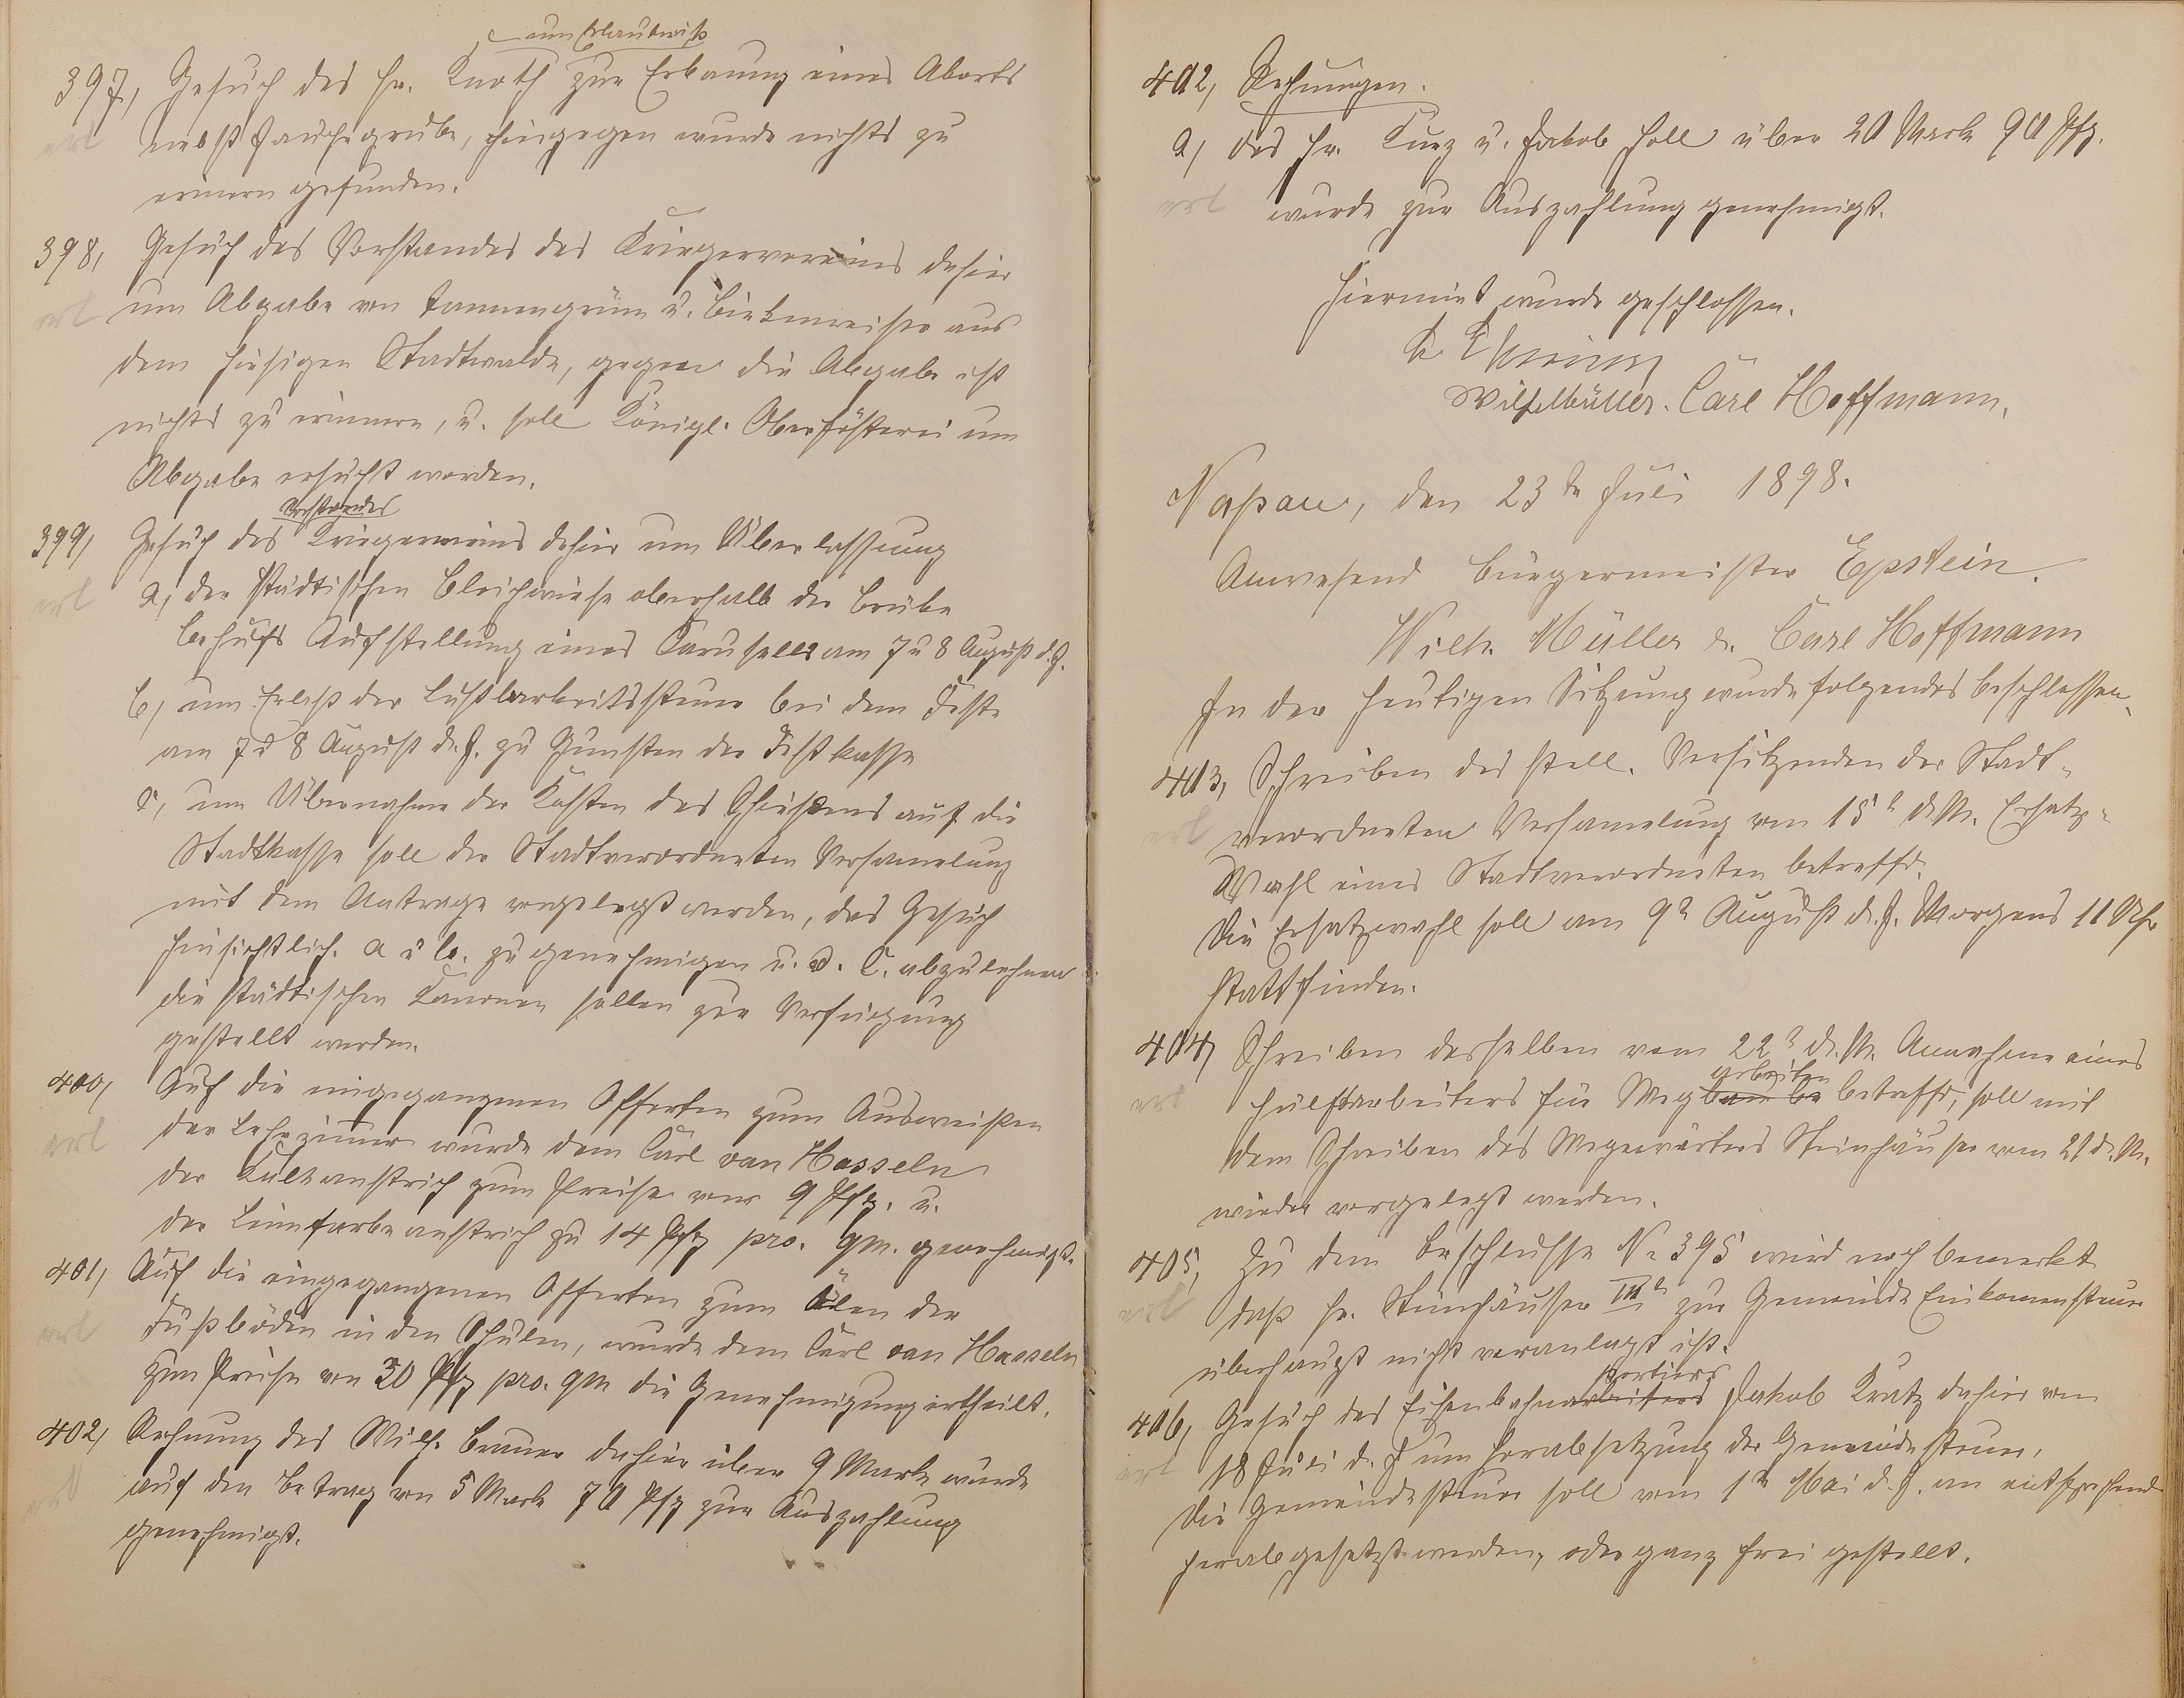 um Erlaubniß
397, Gesuch des Hr. Knoth zur Erbauung eines Aborts
erl nebst Jauchegrube, hingegen wurde nichts zu
erinnern gefunden.
398, Gesuch des Vorstandes des Kriegervereins dahier
erl um Abgabe von Tannengrün u. Birkenreiser aus
dem hiesigen Stadtwalde, gegen die Abgabe ist
nichts zu erinnern, u. soll Königl. Oberfösterei um
Abgabe ersucht werden.
Vorstandes
399, Gesuch des Kriegervereins dahier um Überlassung
erl a, der städtischen Bleichwiese oberhalb der Brücke
behufs Aufstellung eines Karusells am 7 u 8 August d. J.
b, um Erlaß der Lustbarkeitssteuer bei dem Feste
am 7 u 8 August d. J. zu Gunsten der Festkasse
c, um Übernahme der Kosten des Schießens auf die
Stadtkasse soll der Stadtverordneten Versamelung
mit dem Antrage vorgelegt werden, das Gesuch
hinsichtlich. a u b. zu genehmigen u. ad. C. abzulehnen
die städtischen Kanonen sollen zur Verfügung
gestellt werden.
400, Auf die eingegangenen Offerten zum Ausweißen
erl der Lehrzimer wurde dem Carl van Hasseln
der Kalkanstrich zum Preise von 9 Pfg. u.
der Leimfarbeanstrich zu 14 Pfg pro. qm. genehmigt.
401, Auf die eingegangenen Offerten zum Ölen der
erl Fußböden in den Schulen, wurde dem Carl van Hasseln
zum Preise von 30 Pfg pro. qm die Genehmigung ertheilt.
402, Rechnung des Wilh. Brauer dahier über 9 Mark wurde
erl auf den Betrag von 5 Mark 70 Pfg zur Auszahlung
genehmigt.
402, Rechnungen.
a, des Hr. Kurz u. Jakob Holl über 20 Mark 90 Pfg.
erl wurde zur Auszahlung genehmigt.
Hiermit wurde geschlossen.
Wilh. Müller. Carl Hoffmann.
Nassau, den 23te Juli 1898.
Anwesend Bürgermeister Epstein.
Wilh. Müller u. Carl Hoffmann
In der heutigen Sitzung wurde folgendes beschlossen.
403, Schreiben des stell. Vorsitzenden der Stadt-
erl verordneten Versamelung vom 15t d. M. Ersatz-
Wahl eines Stadtverordneten betreffd.
Die Ersatzwahl soll am 9t August d. J. Morgens 11 Uhr
stattfinden.
404, Schreiben desselben vom 22t d. M. Annahme eines
arbeiten
erl Hülfsarbeiters für Wegbau be betreffd, soll mit
dem Schreiben des Wegewärters Steinhäuser vom 21 d. M.
wieder vorgelegt werden.
405, Zu dem Beschlusse No 395 wird noch bemerkt
erl daß Hr. Steinhäuser IIIt zur Gemeinde Einkomensteuer
überhaupt nicht veranlagt ist.
portiers
406, Gesuch des Eisenbahnarbeiters Jakob Kratz dahier vom
erl 18 Juli d. J um Herabsetzung der Gemeindesteuer.
Die Gemeindesteuer soll vom 1te Mai d. J. an entsprechend
herabgesetzt werden, oder ganz frei gestellt.